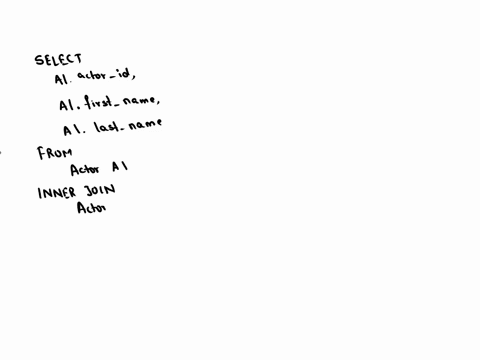 SELECT
A1. actor_id,
A1. first_name,
A1. last_name
FROM
Actor A1
INNER JOIN
Actor